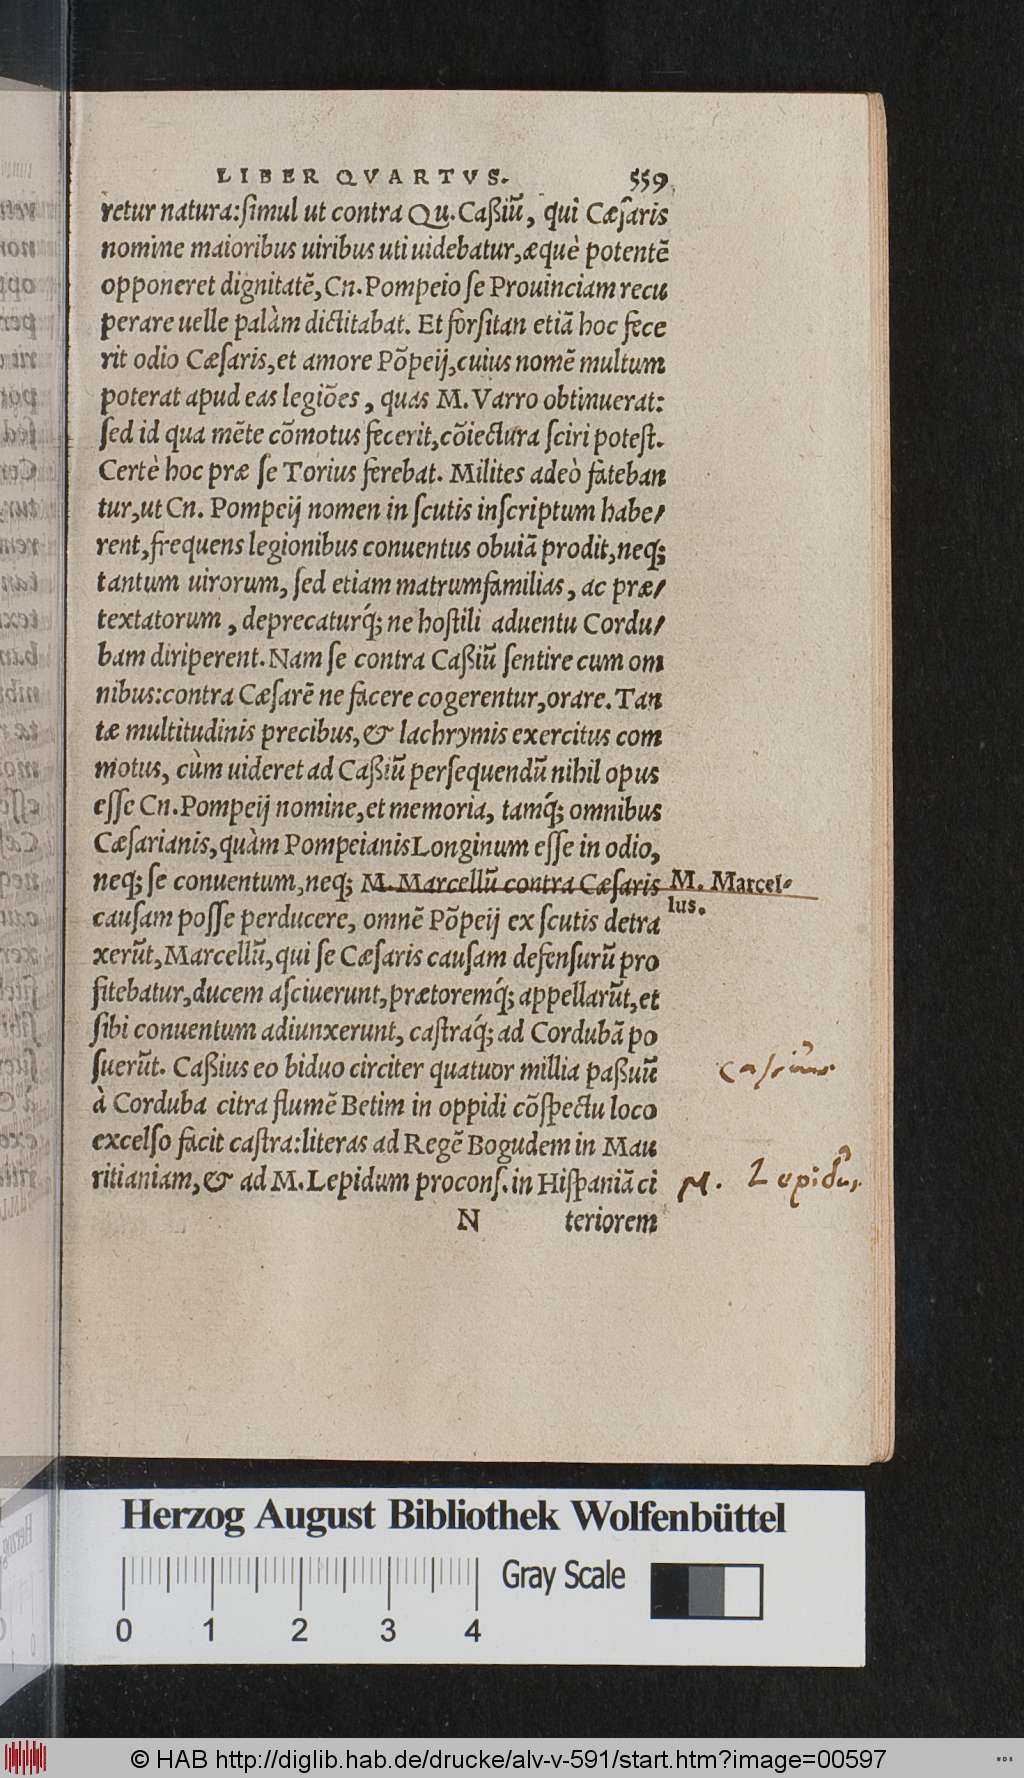 LIBER QVARTVS. 559
retur natura: ſimul ut contra Qu. Caßiũ, qui Cæſaris
nomine maioribus uiribus uti uidebatur, æquè potentẽ
opponeret dignitatẽ, Cn. Pompeio ſe Prouinciam recu
perare uelle palàm dictitabat. Et forſitan etiã hoc fece
rit odio Cæſaris, et amore Põpeij, cuius nomẽ multum
poterat apud eas legiões, quas M. Varro obtinuerat:
ſed id qua mẽte cõmotus fecerit, cõiectura ſciri poteſt.
Certè hoc præ ſe Torius ferebat. Milites adeò fateban
tur, ut Cn. Pompeij nomen in ſcutis inſcriptum habe/
rent, frequens legionibus conuentus obuiã prodit, neq;
tantum uirorum, ſed etiam matrumfamilias, ac præ/
textatorum, deprecaturq́; ne hoſtili aduentu Cordu/
bam diriperent. Nam ſe contra Caßiũ ſentire cum om
nibus: contra Cæſarẽ ne facere cogerentur, orare. Tan
tæ multitudinis precibus, & lachrymis exercitus com
motus, cùm uideret ad Caßiũ perſequendũ nihil opus
eſſe Cn. Pompeij nomine, et memoria, tamq́; omnibus
Cæſarianis, quàm Pompeianis Longinum eſſe in odio,
neq; ſe conuentum, neq; M. Marcellũ contra Cæſaris M. Marcel-
lus.
cauſam poſſe perducere, omnẽ Põpeij ex ſcutis detra
xerũt, Marcellũ, qui ſe Cæſaris cauſam defenſurũ pro
fitebatur, ducem aſciuerunt, prætoremq́; appellarũt, et
ſibi conuentum adiunxerunt, caſtraq́; ad Cordubã po
ſuerũt. Caßius eo biduo circiter quatuor millia paßuũ
Caſsius
à Corduba citra flumẽ Betim in oppidi cõſpectu loco
excelſo facit caſtra: literas ad Regẽ Bogudem in Mau
ritianiam, & ad M. Lepidum proconſ. in Hiſpaniã ci M. Lepidus.
N teriorem
Herzog August Bibliothek Wolfenbüttel
Gray Scale
0 1 2 3 4
© HAB http://diglib.hab.de/drucke/alv-v-591/start.htm?image=00597